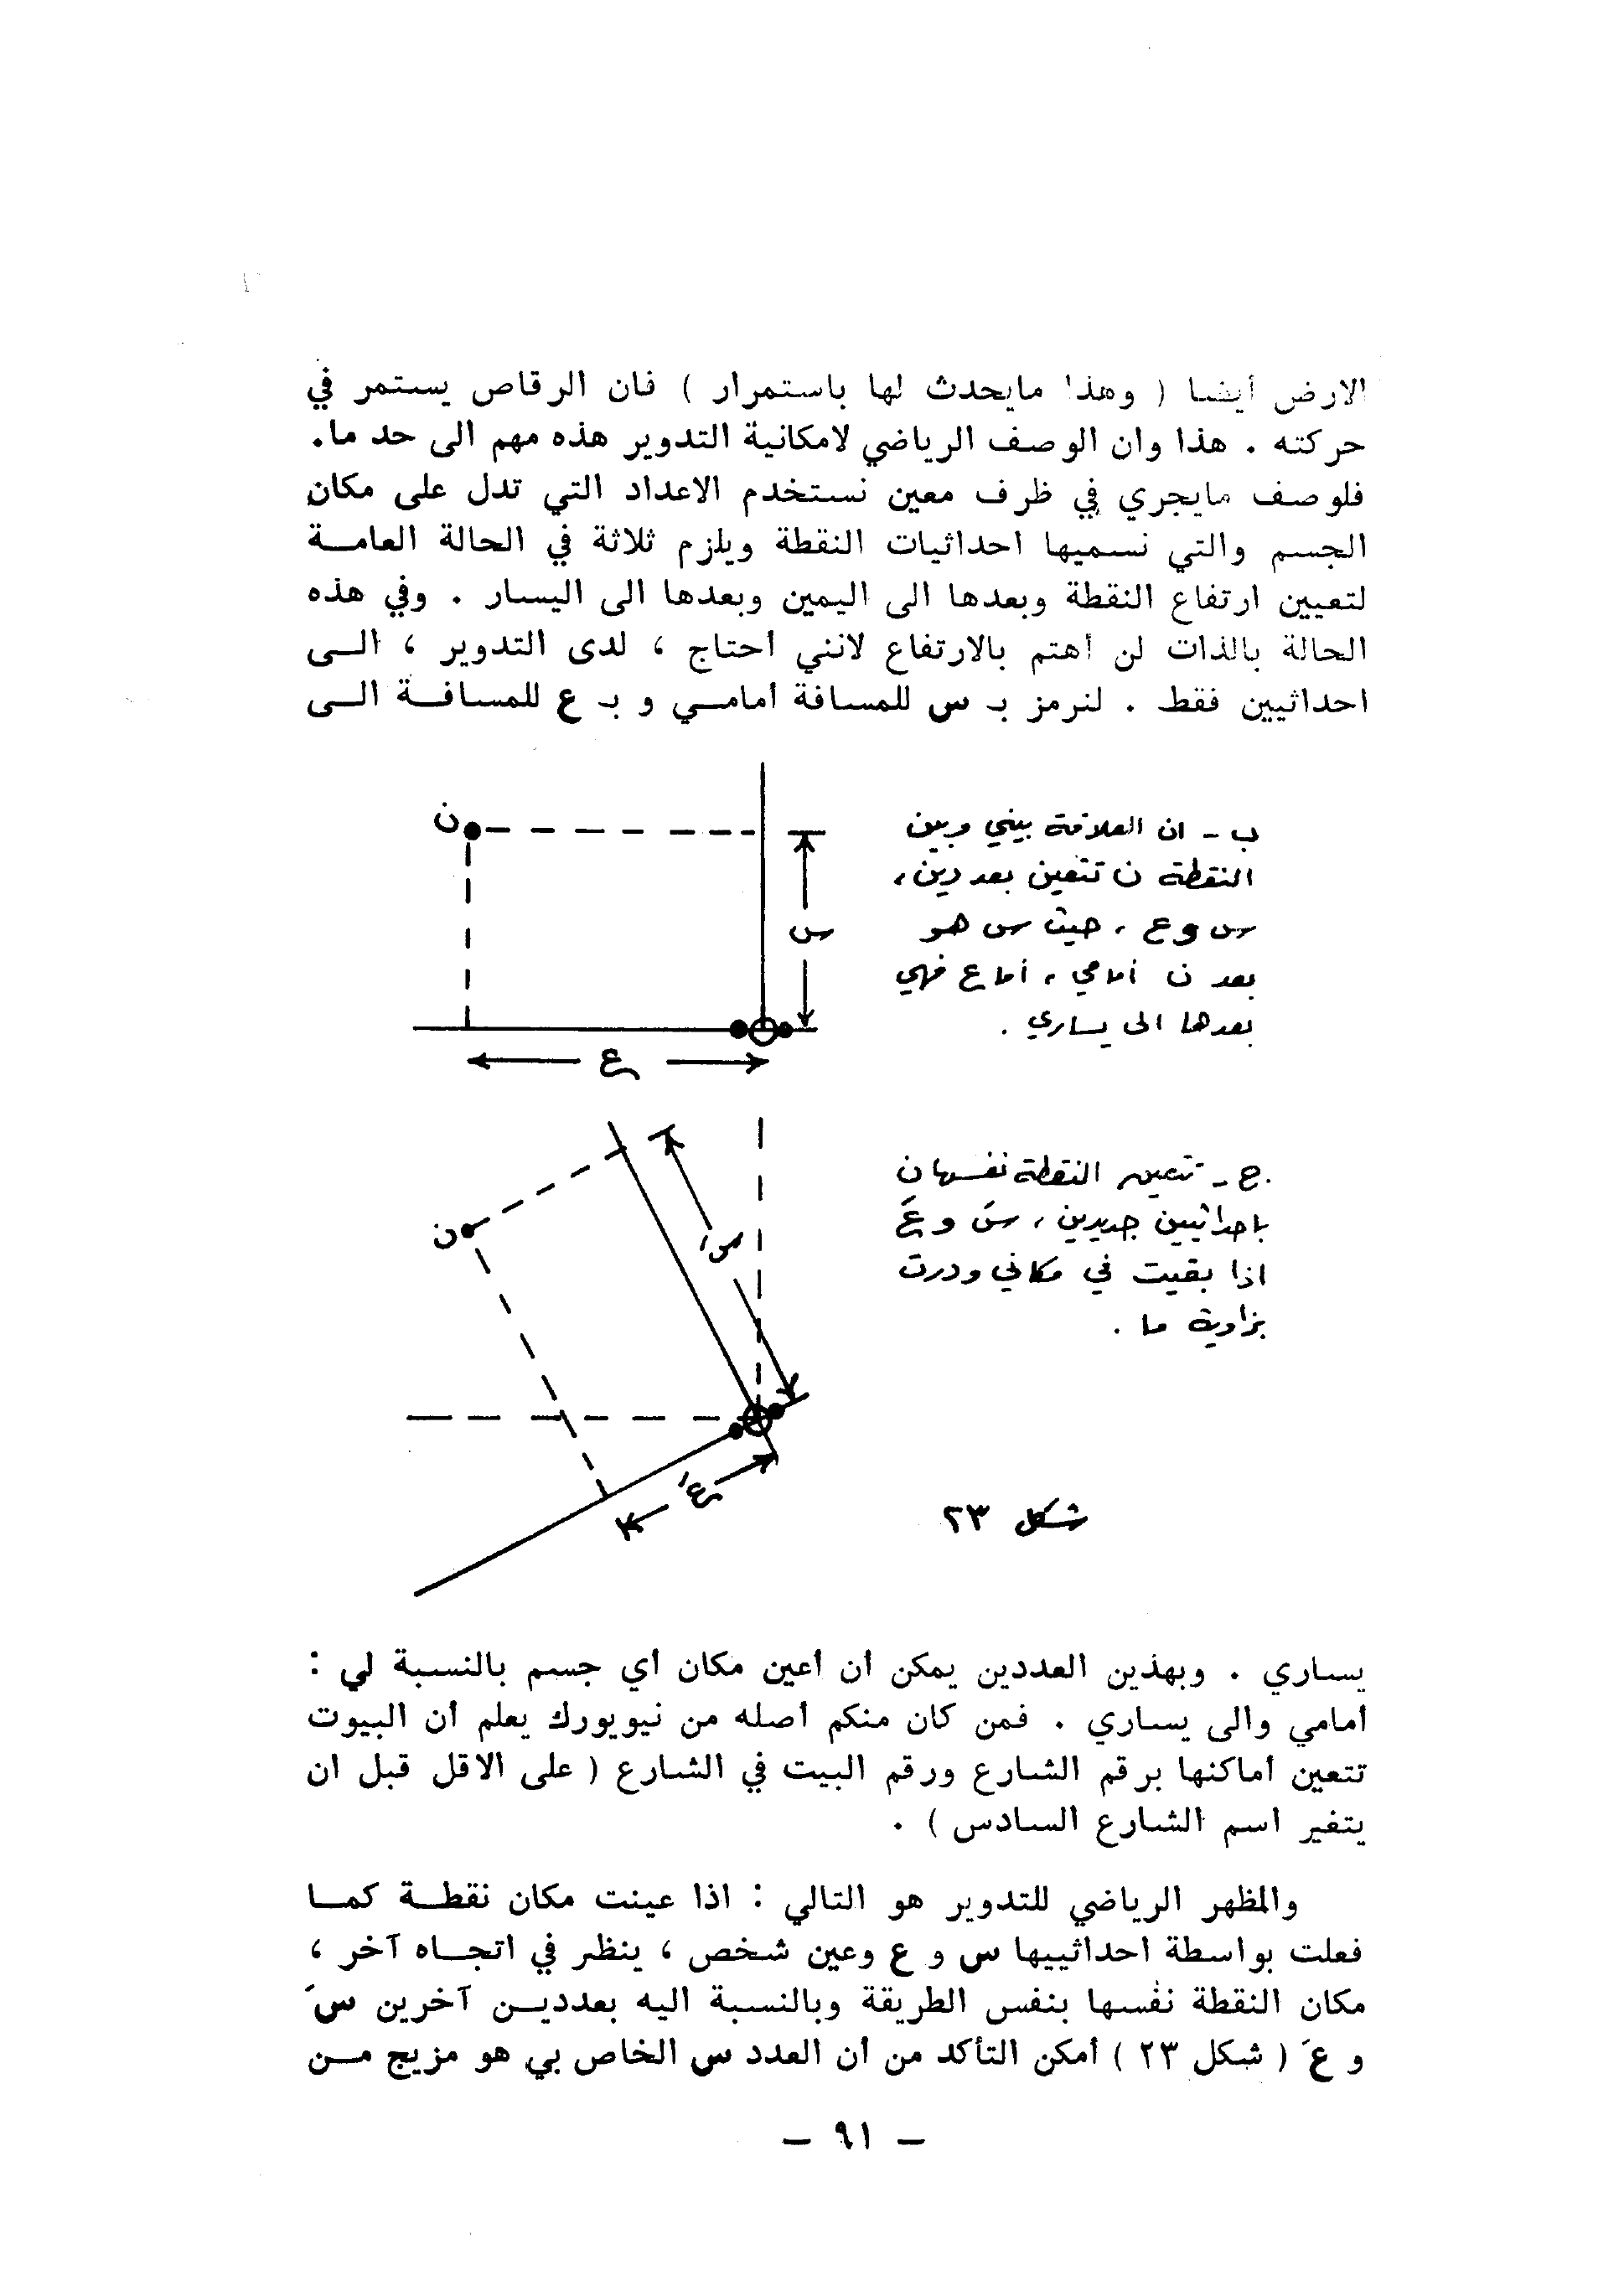 الارض أيضا ( وهذا مايحدث لها باستمرار ) فان الرقاص يستمر في
حركته . هذا وان الوصف الرياضي لامكانية التدوير هذه مهم الى حد ما.
فلوصف مايجري في ظرف معين نستخدم الاعداد التي تدل على مكان
الجسم والتي نسميها احداثيات النقطة ويلزم ثلاثة في الحالة العامــة
لتعيين ارتفاع النقطة وبعدها الى اليمين وبعدها الى اليسار . وفي هذه
الحالة بالذات لن أهتم بالارتفاع لانني أحتاج ، لدى التدوير ، الــى
احداثيين فقط . لنرمز بـ س للمسافة أمامــي و بـ ع للمسافــة الــى
ب - ان العلاقة بيني وبين
النقطة ن تتعين بعددين،
س و ع ، حيث س هو
بعد ن أمامي ، أما ع فهي
بعدها الى يساري .
ن
س
ع
ج - تتعين النقطة نفسها ن
باحداثيين جديدين ، سَ و عَ
اذا بقيت في مكاني ودرت
بزاوية ما .
ن
سَ
عَ
شكل ٢٣
يساري . وبهذين العددين يمكن أن أعين مكان أي جسم بالنسبة لي :
أمامي والى يساري . فمن كان منكم أصله من نيويورك يعلم أن البيوت
تتعين أماكنها برقم الشارع ورقم البيت في الشارع ( على الاقل قبل ان
يتغير اسم الشارع السادس ) .
والمظهر الرياضي للتدوير هو التالي : اذا عينت مكان نقطــة كمــا
فعلت بواسطة احداثييها س و ع وعين شخص ، ينظر في اتجــاه آخر ،
مكان النقطة نفسها بنفس الطريقة وبالنسبة اليه بعدديــن آخرين سَ
و عَ ( شكل ٢٣ ) أمكن التأكد من أن العدد س الخاص بي هو مزيج مــن
– ٩١ –